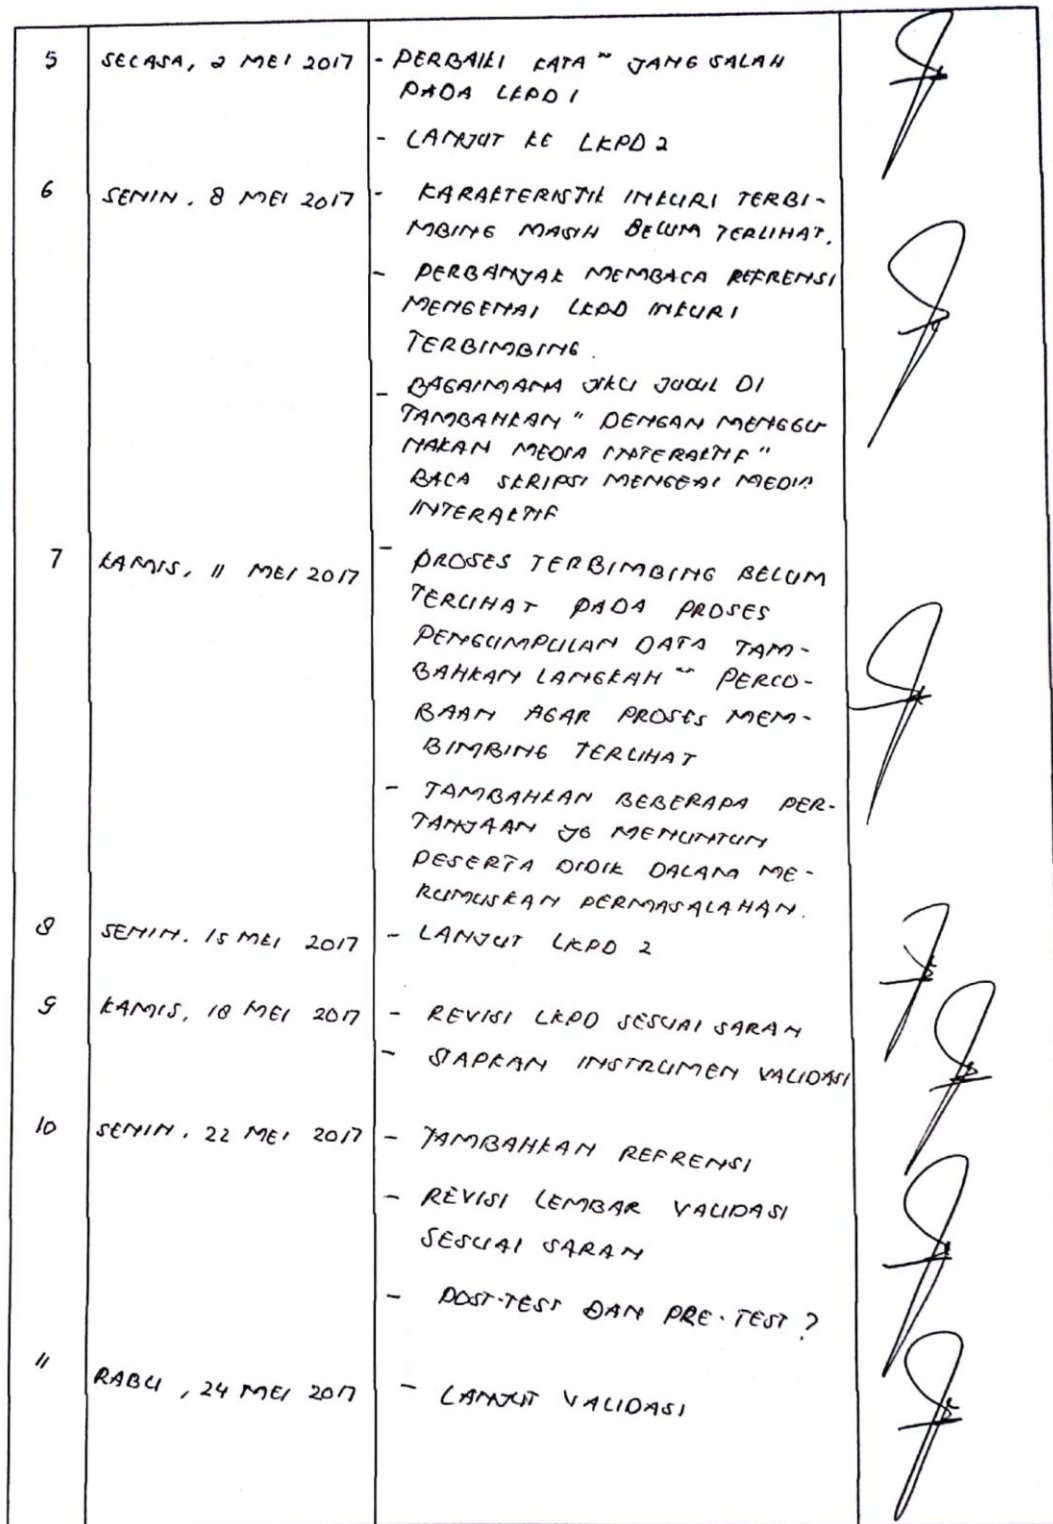 5 SELASA, 2 MEI 2017 - PERBAIKI KATA" YANG SALAH
PADA LKPD 1
- LANJUT KE LKPD 2
6 SENIN, 8 MEI 2017 - KARAKTERISTIK INKUIRI TERBI-
MBING MASIH BELUM TERLIHAT.
- PERBANYAK MEMBACA REFRENSI
MENGENAI LKPD INKUIRI
TERBIMBING.
- BAGAIMANA JIKA JUDUL DI
TAMBAHKAN " DENGAN MENGGU
NAKAN MEDIA INTERAKTIF "
BACA SKRIPSI MENGEAI MEDIA
INTERAKTIF
7 KAMIS, 11 MEI 2017 - PROSES TERBIMBING BELUM
TERLIHAT PADA PROSES
PENGUMPULAN DATA TAM-
BAHKAN LANGKAH " PERCO-
BAAN AGAR PROSES MEM-
BIMBING TERLIHAT
- TAMBAHKAN BEBERAPA PER-
TANYAAN YG MENUNTUN
PESERTA DIDIK DALAM ME-
RUMUSKAN PERMASALAHAN.
8 SENIN. 15 MEI 2017 - LANJUT LKPD 2
9 KAMIS, 18 MEI 2017 - REVISI LKPD SESUAI SARAN
- SIAPKAN INSTRUMEN VALIDASI
10 SENIN. 22 MEI 2017 - TAMBAHKAN REFRENSI
- REVISI LEMBAR VALIDASI
SESUAI SARAN
- POST-TEST DAN PRE-TEST ?
11 RABU, 24 MEI 2017 - LANJUT VALIDASI